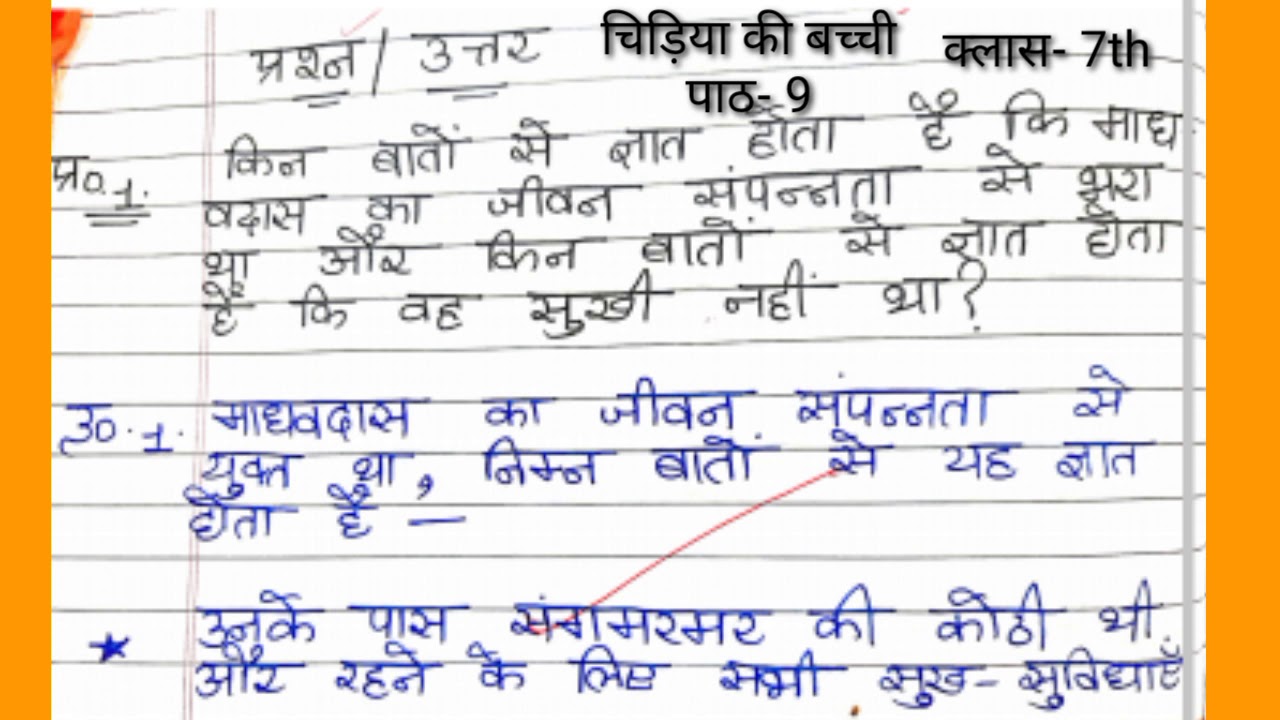 प्रश्न / उत्तर
चिड़िया की बच्ची क्लास- 7th
पाठ- 9
प्र०.1. किन बातों से ज्ञात होता है कि माध
वदास का जीवन संपन्नता से भरा
था और किन बातों से ज्ञात होता
है कि वह सुखी नहीं था?
उ०.1. माधवदास का जीवन संपन्नता से
युक्त था, निम्न बातों से यह ज्ञात
होता है —
उनके पास संगमरमर की कोठी थी.
और रहने के लिए सभी सुख-सुविधाएँ